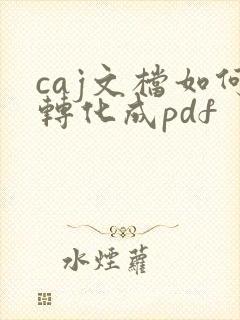 caj文檔如何
轉化成pdf
水煙蘿